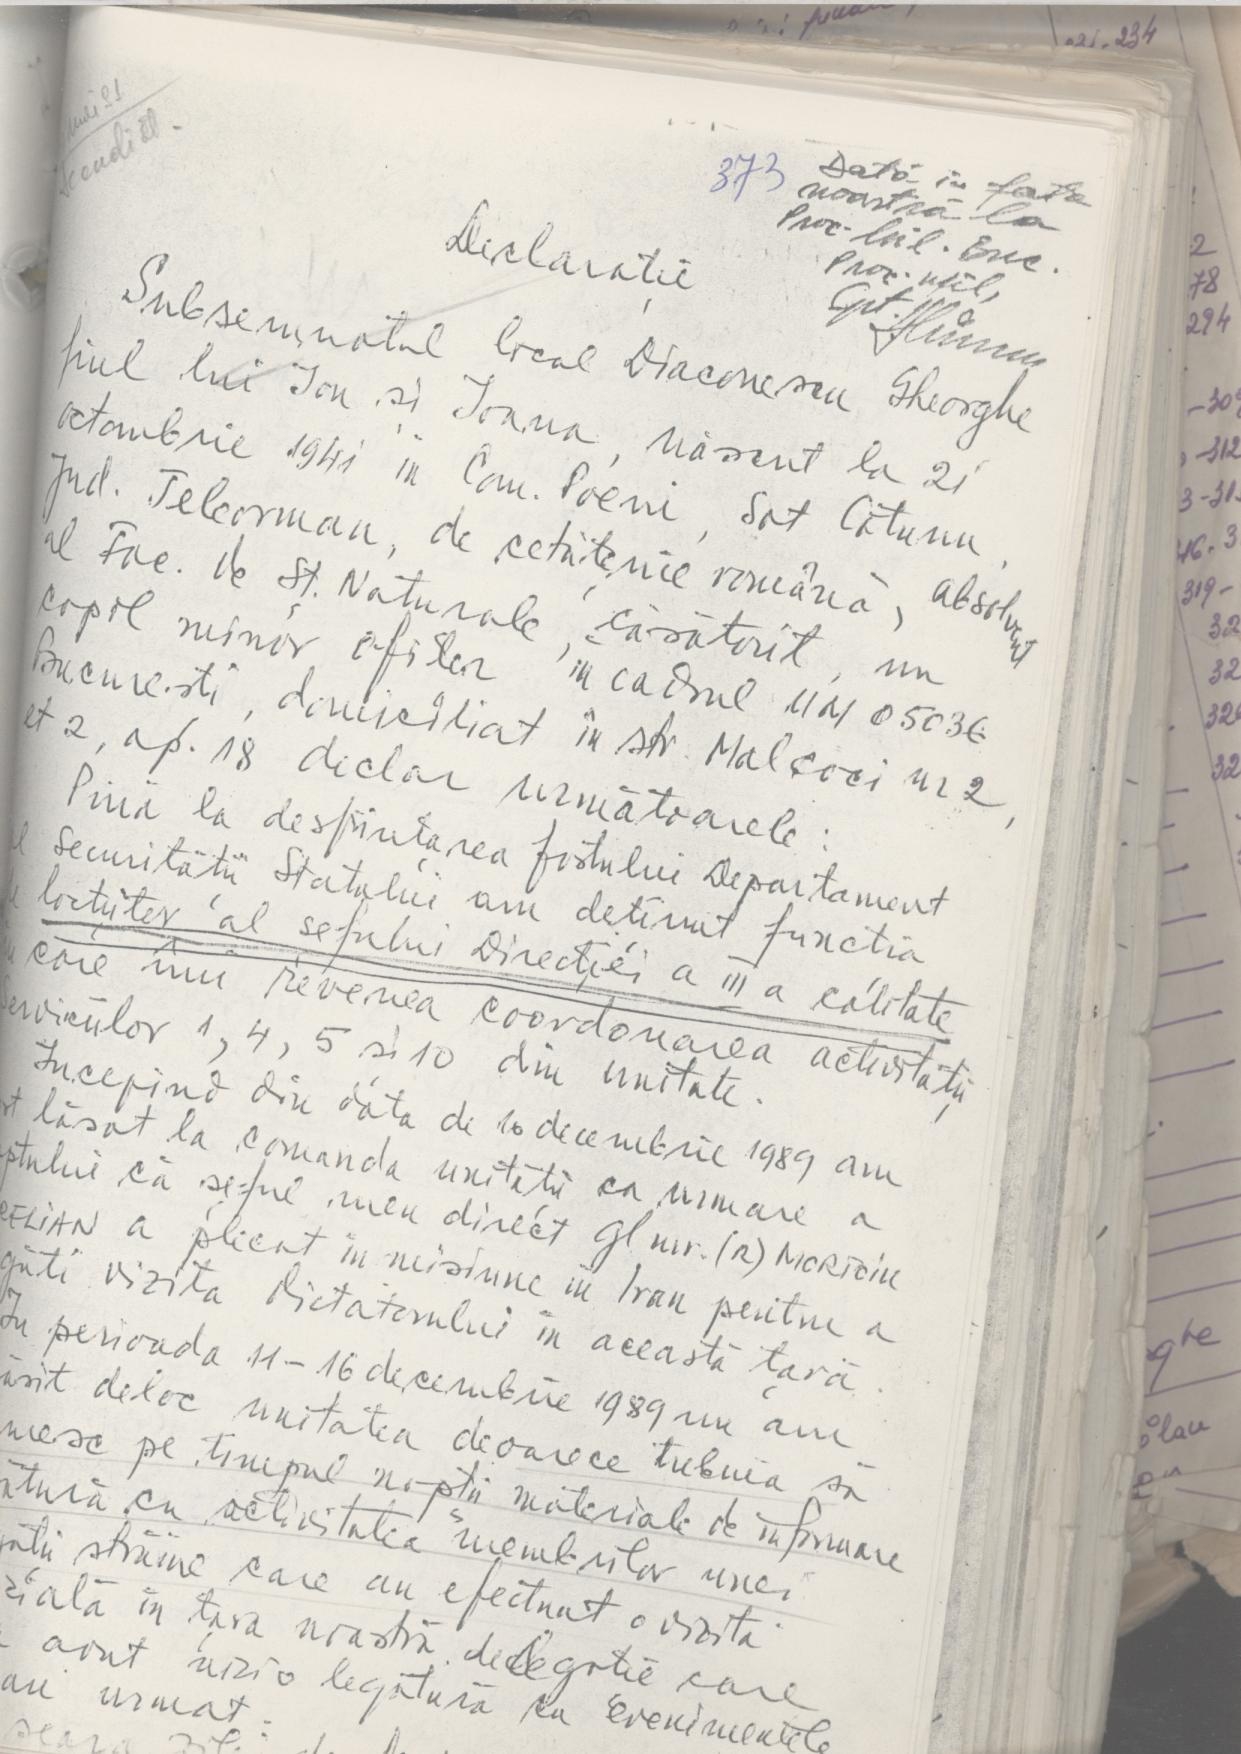 373
Dată în fața
noastră la
Proc. Mil. Buc.
Proc. mil,
Cpt.
Declarație
Subsemnatul lt.col Diaconescu Gheorghe
fiul lui Ion și Ioana, născut la 21
octombrie 1941 în Com. Poeni, Sat Cătunu
Jud. Teleorman, de cetățenie română, absolvent
al Fac. de Șt. Naturale, căsătorit, un
copil minor ofițer în cadrul UM 05036
București, domiciliat în str. Malcoci nr 2,
et 2, ap. 18 declar următoarele:
Pînă la desființarea fostului Departament
al Securității Statului am deținut funcția
locțiitor al șefului Direcției a III a calitate
în care îmi revenea coordonarea activității
Serviciilor 1, 4, 5 și 10 din unitate.
Începînd din data de 10 decembrie 1989 am
lăsat la comanda unității ca urmare a
faptului că șeful meu direct Gl mr. (R)
a plecat în misiune în Iran pentru a
găti vizita dictatorului în această țară.
În perioada 11-16 decembrie 1989 nu am
părăsit deloc unitatea deoarece trebuia să
pe timpul nopții materiale de informare
legătură cu activitatea membrilor unei
gații străine care au efectuat o vizită
în țara noastră delegație care
avut nizio legătură cu evenimentele
au urmat.
seara zilei de
021-234
2
78
294
-312
319-
32